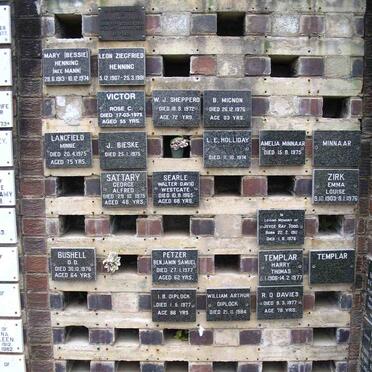 MARY (BESSIE)
HENNING
(NEE MANN)
LEON ZIEGFRIED
HENNING
VICTOR
ROSE C.
DIED 17-03-1975
AGED 55 YRS.
W. J. SHEPPERD
DIED 18. 8. 1972
AGE 72 YRS
B. MIGNON
DIED 26. 12. 1976
AGED 83 YRS.
LANGFIELD
MINNIE
DIED 20. 4. 1975
AGED 75 YRS.
J. BIESKE
DIED 25. 1. 1975
L. E. HOLLIDAY
DIED 11. 10. 1974
AMELIA MINNAAR
DIED 15. 8. 1975
MINNAAR
SATTARY
GEORGE
ALFRED
AGED 48 YRS.
SEARLE
WALTER DAVID
WESTGATE
AGED 68 YRS.
ZIRK
EMMA
LOUISE
IN LOVING MEMORY OF
JOYCE RAY TODD
BUSHELL
O. D.
DIED 30. 10. 1976
AGED 64 YRS
PETZER
BENJAMIN SAMUEL
DIED 27. 1. 1977
AGED 62 YRS
TEMPLAR
HARRY
THOMAS
TEMPLAR
I. B. DIPLOCK
DIED 1. 6. 1977
AGE 86 YRS
WILLIAM ARTHUR
DIPLOCK
DIED 21. 11. 1984
R. O. DAVIES
DIED 9. 3. 1977
AGE 78 YRS.